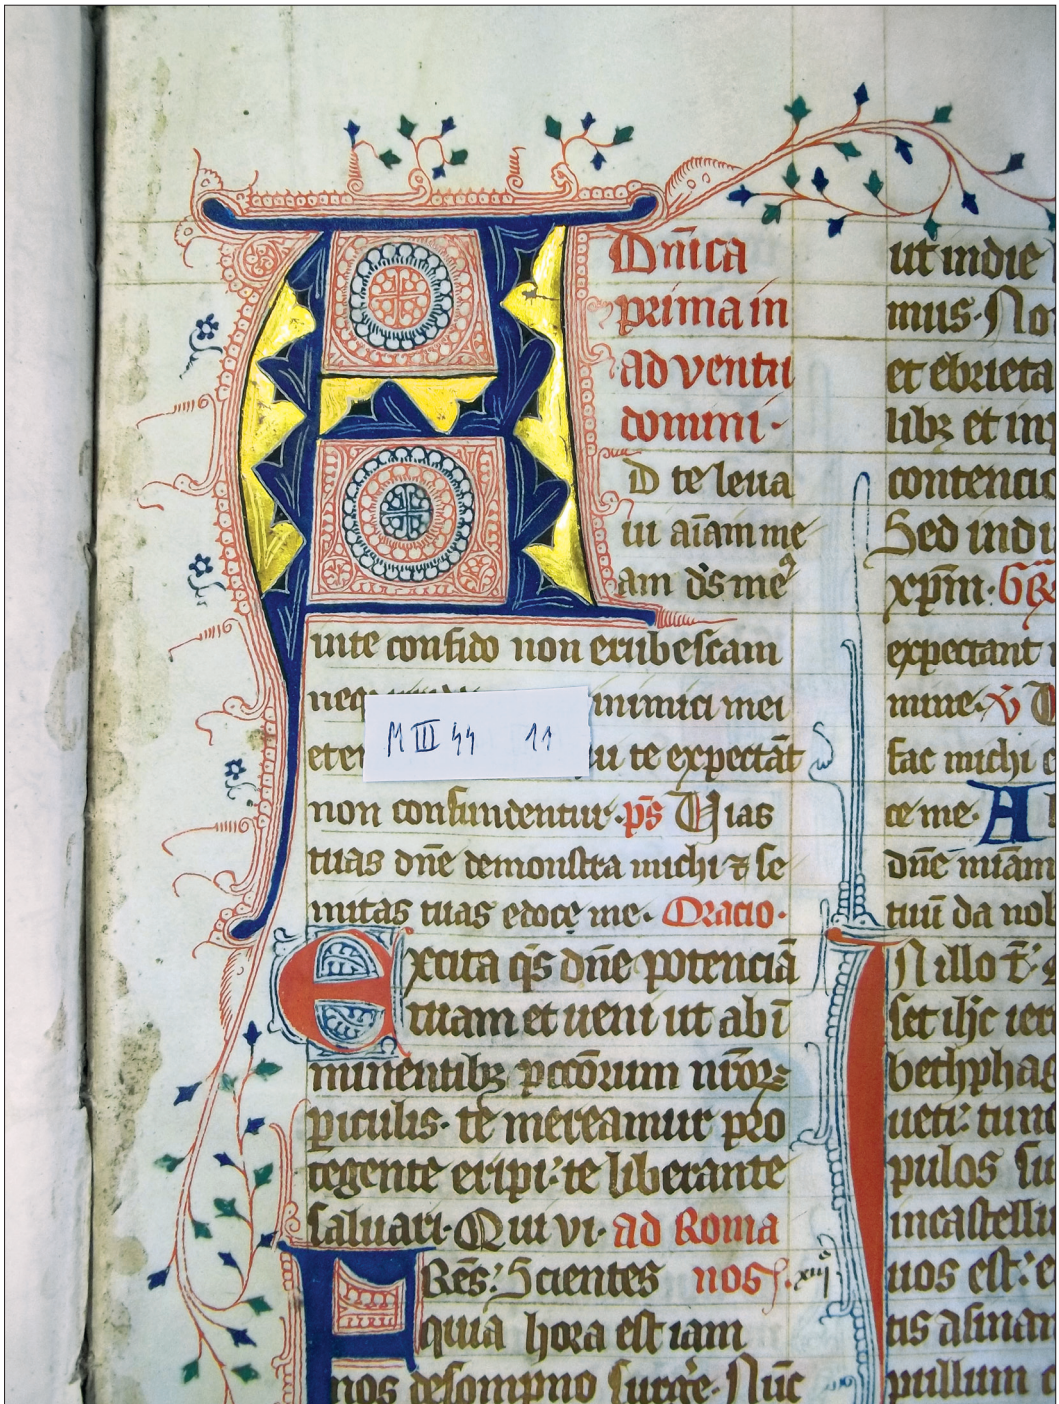 Dn̄ica
prima in
adventu
domini·
D te leua
ui aīam me
am d̄s me⁹
inte confido non erubescam
neq inimici mei
eten ui te expectāt
non confundentur· ps̄ Vias
tuas dn̄e demonstra michi ⁊ se
mitas tuas edoce me· Oracio·
Excita q̄s dn̄e potenciā
tuam et ueni ut ab ī
minentibꝫ pccōrum nr̄oꝝ
ꝑiculis· te mereamur pro
tegente eripi· te liberante
saluari· Qui vi· ad Roma
FRēs: Scientes nos xiij
quia hora est iam
nos desompno surgẻ· Nūc
M III 44 11
ut in die
mus· No
et ebrieta
libꝫ et in
contencio
Sed indu
xp̄m· GR
expectant
mine· v̄
fac michi
ce me· Al
dn̄e mīam
tuū da nob
IN illo t̄·
set ih̄c ier
bethphag
ueti: tunc
pulos su
in castellu
uos est: e
tis asinam
pullum